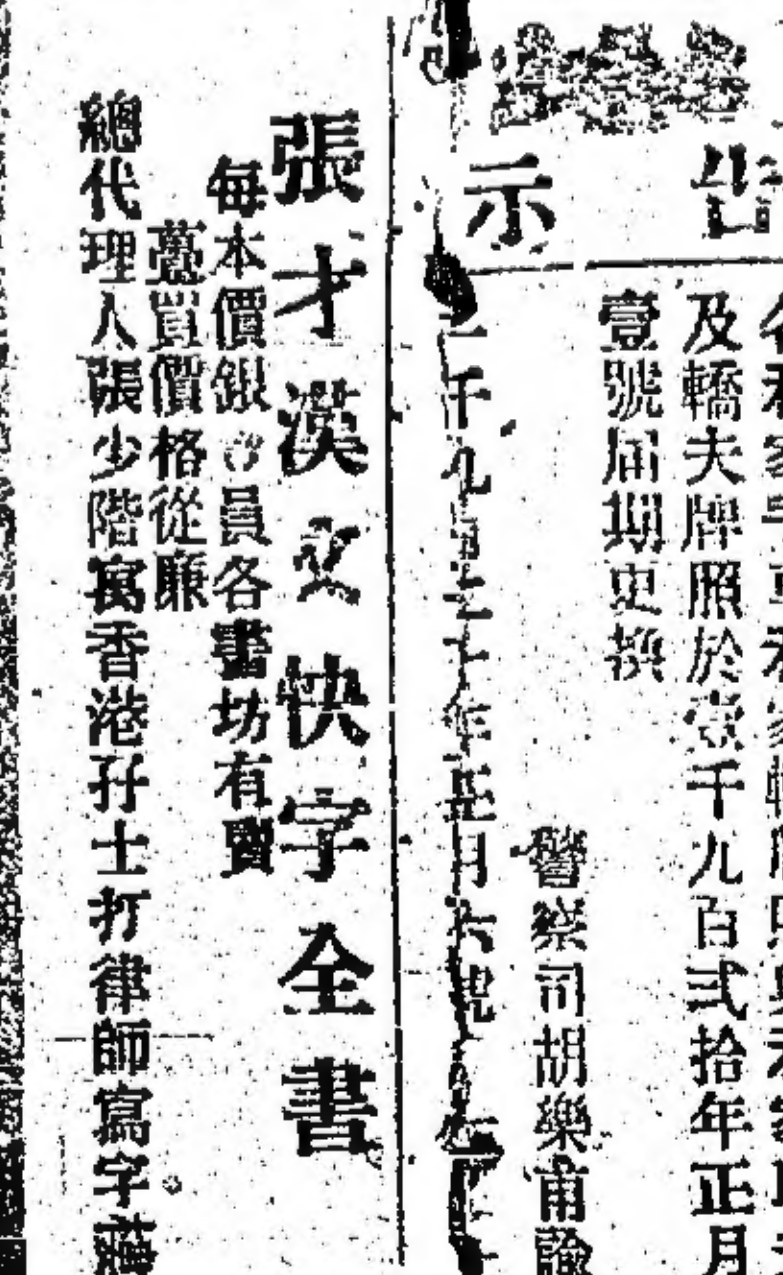 告示
及轎夫牌照於壹千九百弍拾年正月
壹號屆期更換
警察司胡樂甫諭
一千九百二十年正月六號
張才漢文快字全書
每本價銀 員各書坊有賣
躉買價格從廉
總代理人張少階寓香港孖士打律師寫字樓